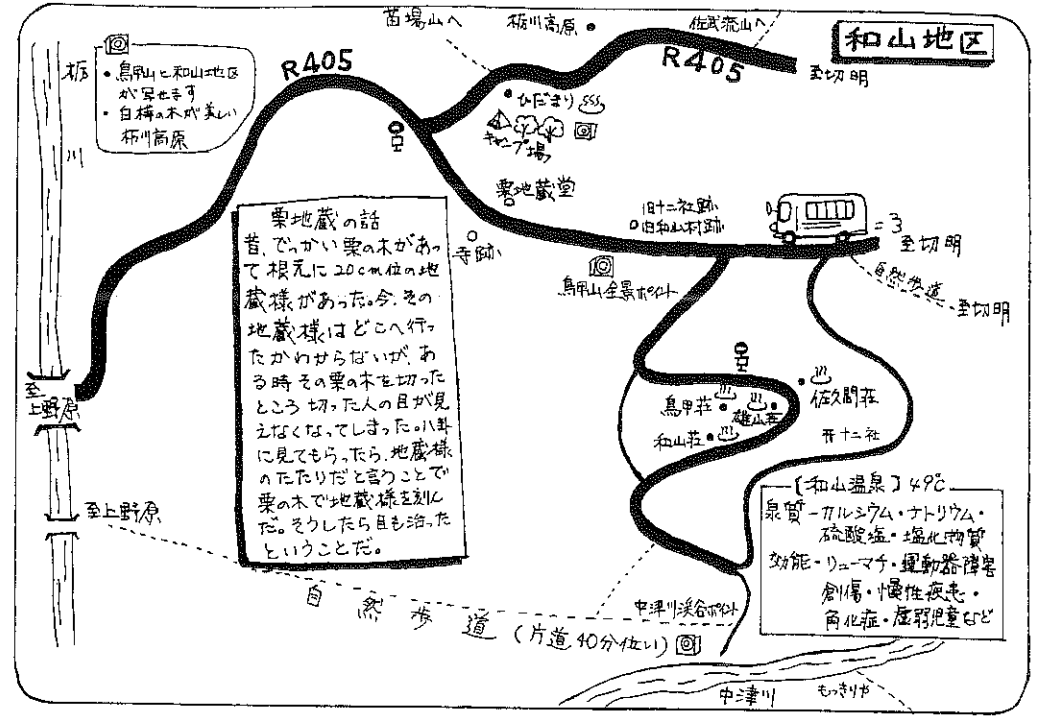 苗場山へ
栃川高原
佐武流山へ
和山地区
栃
川
・鳥甲山と和山地区
が写せます
・白樺の木が美しい
栃川高原
R405
R405
至切明
ひだまり
キャンプ場
栗地蔵堂
旧十二社跡
旧和山村跡
=3
至切明
寺跡
鳥甲山全景ポイント
自然歩道
至切明
栗地蔵の話
昔、でっかい栗の木があっ
て根元に20cm位の地
蔵様があった。今、その
地蔵様はどこへ行っ
たかわからないが、あ
る時その栗の木を切った
ところ切った人の目が見
えなくなってしまった。八卦
に見てもらったら、地蔵様
のたたりだと言うことで
栗の木で地蔵様を刻ん
だ。そうしたら目も治った
ということだ。
至
上野原
鳥甲荘
雄山荘
佐久間荘
和山荘
十二社
至上野原
【和山温泉】49℃
泉質-カルシウム・ナトリウム・
硫酸塩・塩化物質
効能・リューマチ・運動器障害
創傷・慢性疾患・
角化症・虚弱児童など
中津川渓谷ポイント
自然歩道(片道40分位い)
中津川
もっきりや